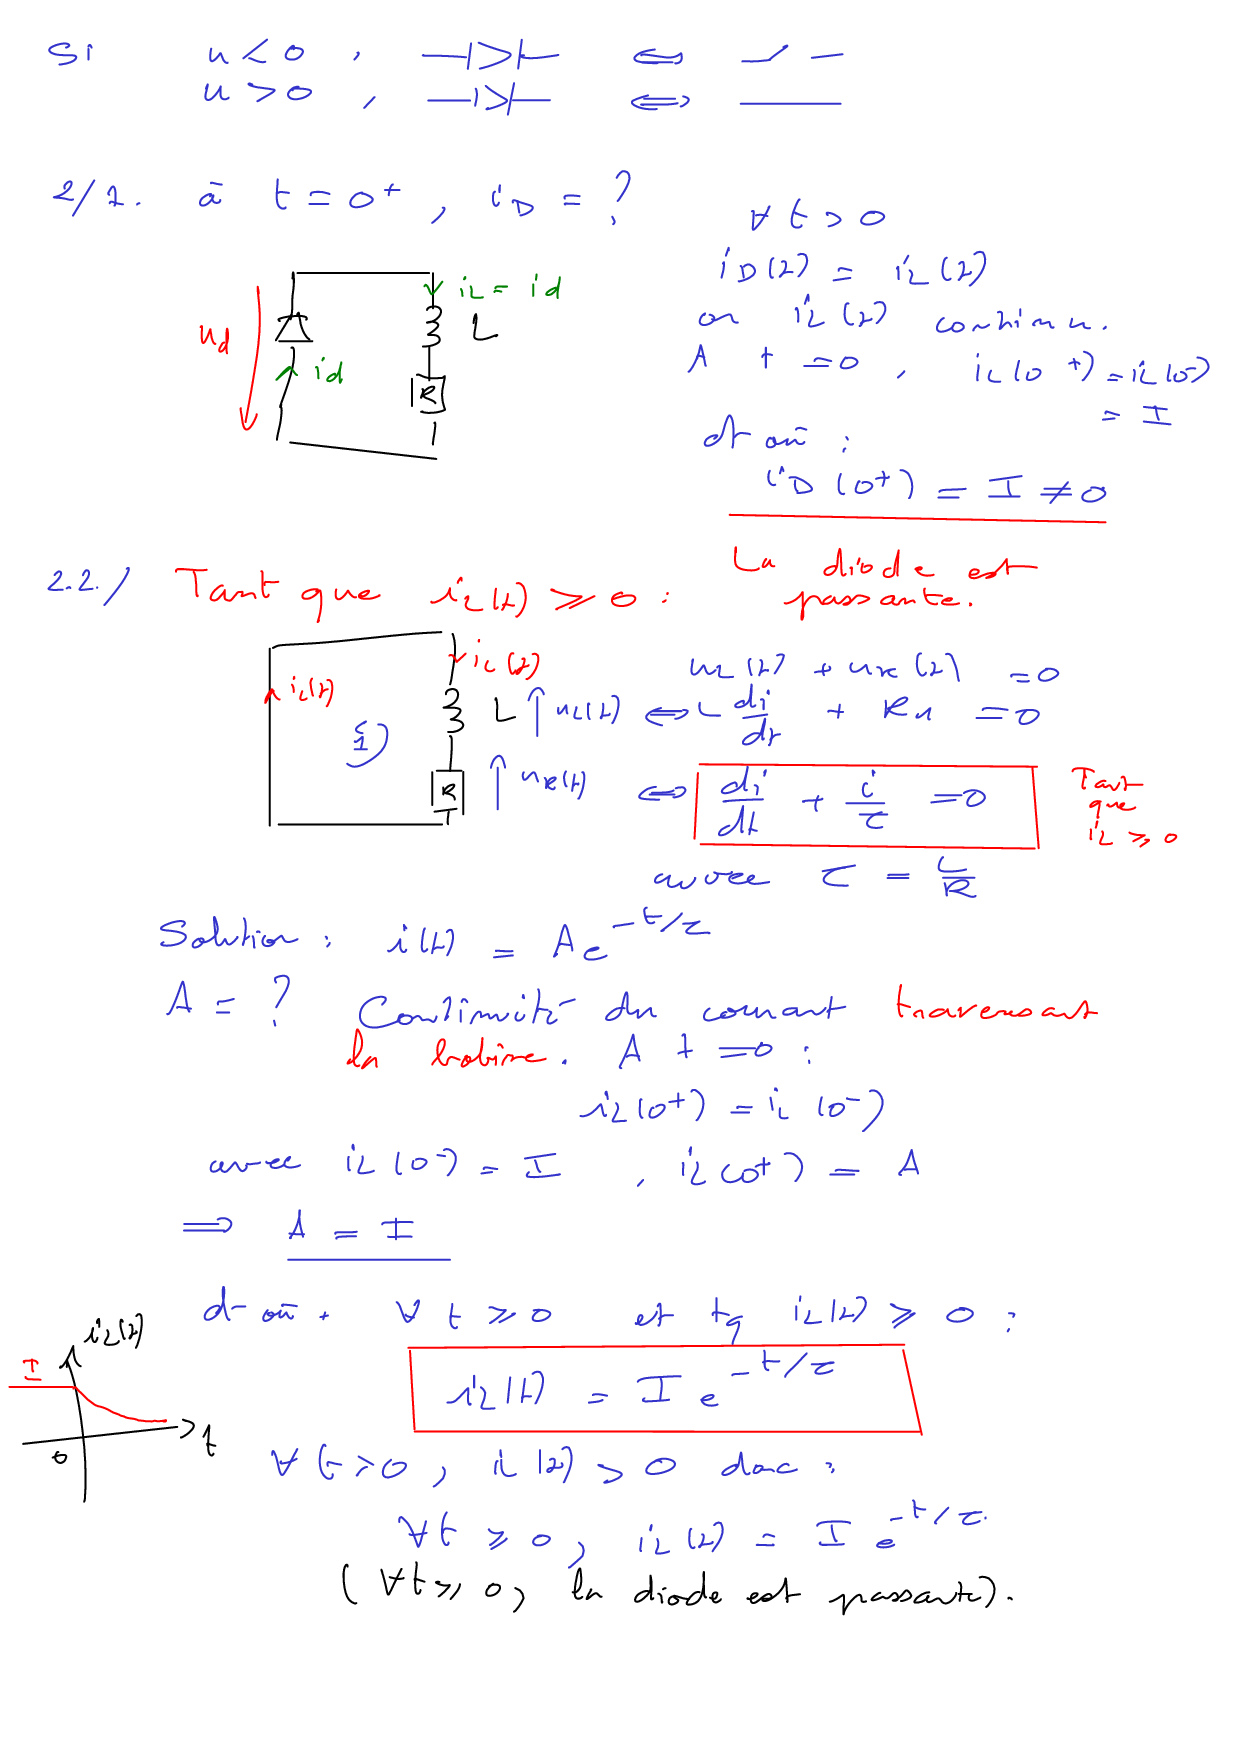 Si u < 0 , ⇔
u > 0 , ⇔
2/1. à t = 0+ , iD = ?
∀ t > 0
iD(t) = iL(t)
or iL(t) continu.
A t = 0 , iL(0+) = iL(0-)
= I
d'où :
iD(0+) = I ≠ 0
La diode est
passante.
ud
id
iL = id
L
R
2.2./ Tant que iL(t) ≥ 0 :
iL(t)
iL(t)
L
uL(t)
R
uR(t)
uL(t) + uR(t) = 0
⇔ L di/dt + Ri = 0
⇔ di/dt + i/τ = 0
Tant
que
iL ≥ 0
avec τ = L/R
Solution : i(t) = A e^-t/τ
A = ? Continuité du courant traversant
la bobine. A t = 0 :
iL(0+) = iL(0-)
avec iL(0-) = I , iL(0+) = A
⇒ A = I
d'où . ∀ t ≥ 0 et tq iL(t) ≥ 0 :
iL(t) = I e^-t/τ
iL(t)
I
0
t
∀ t > 0 , iL(t) > 0 donc :
∀t ≥ 0 , iL(t) = I e^-t/τ
(∀t ≥ 0, la diode est passante).